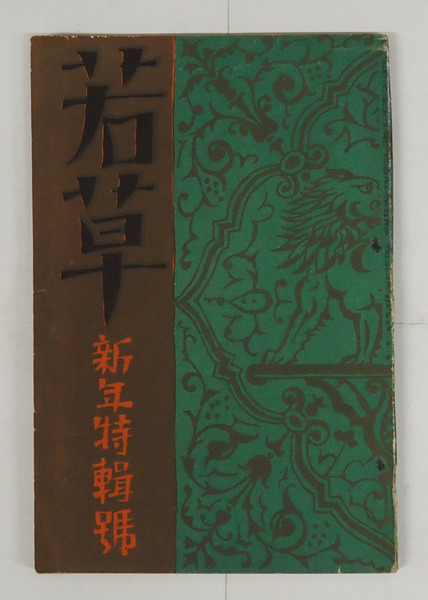 若草
新年特輯號